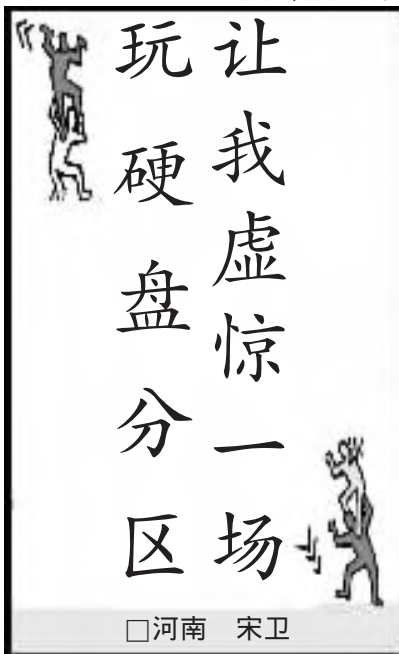 玩硬盘分区
让我虚惊一场
□河南　宋卫